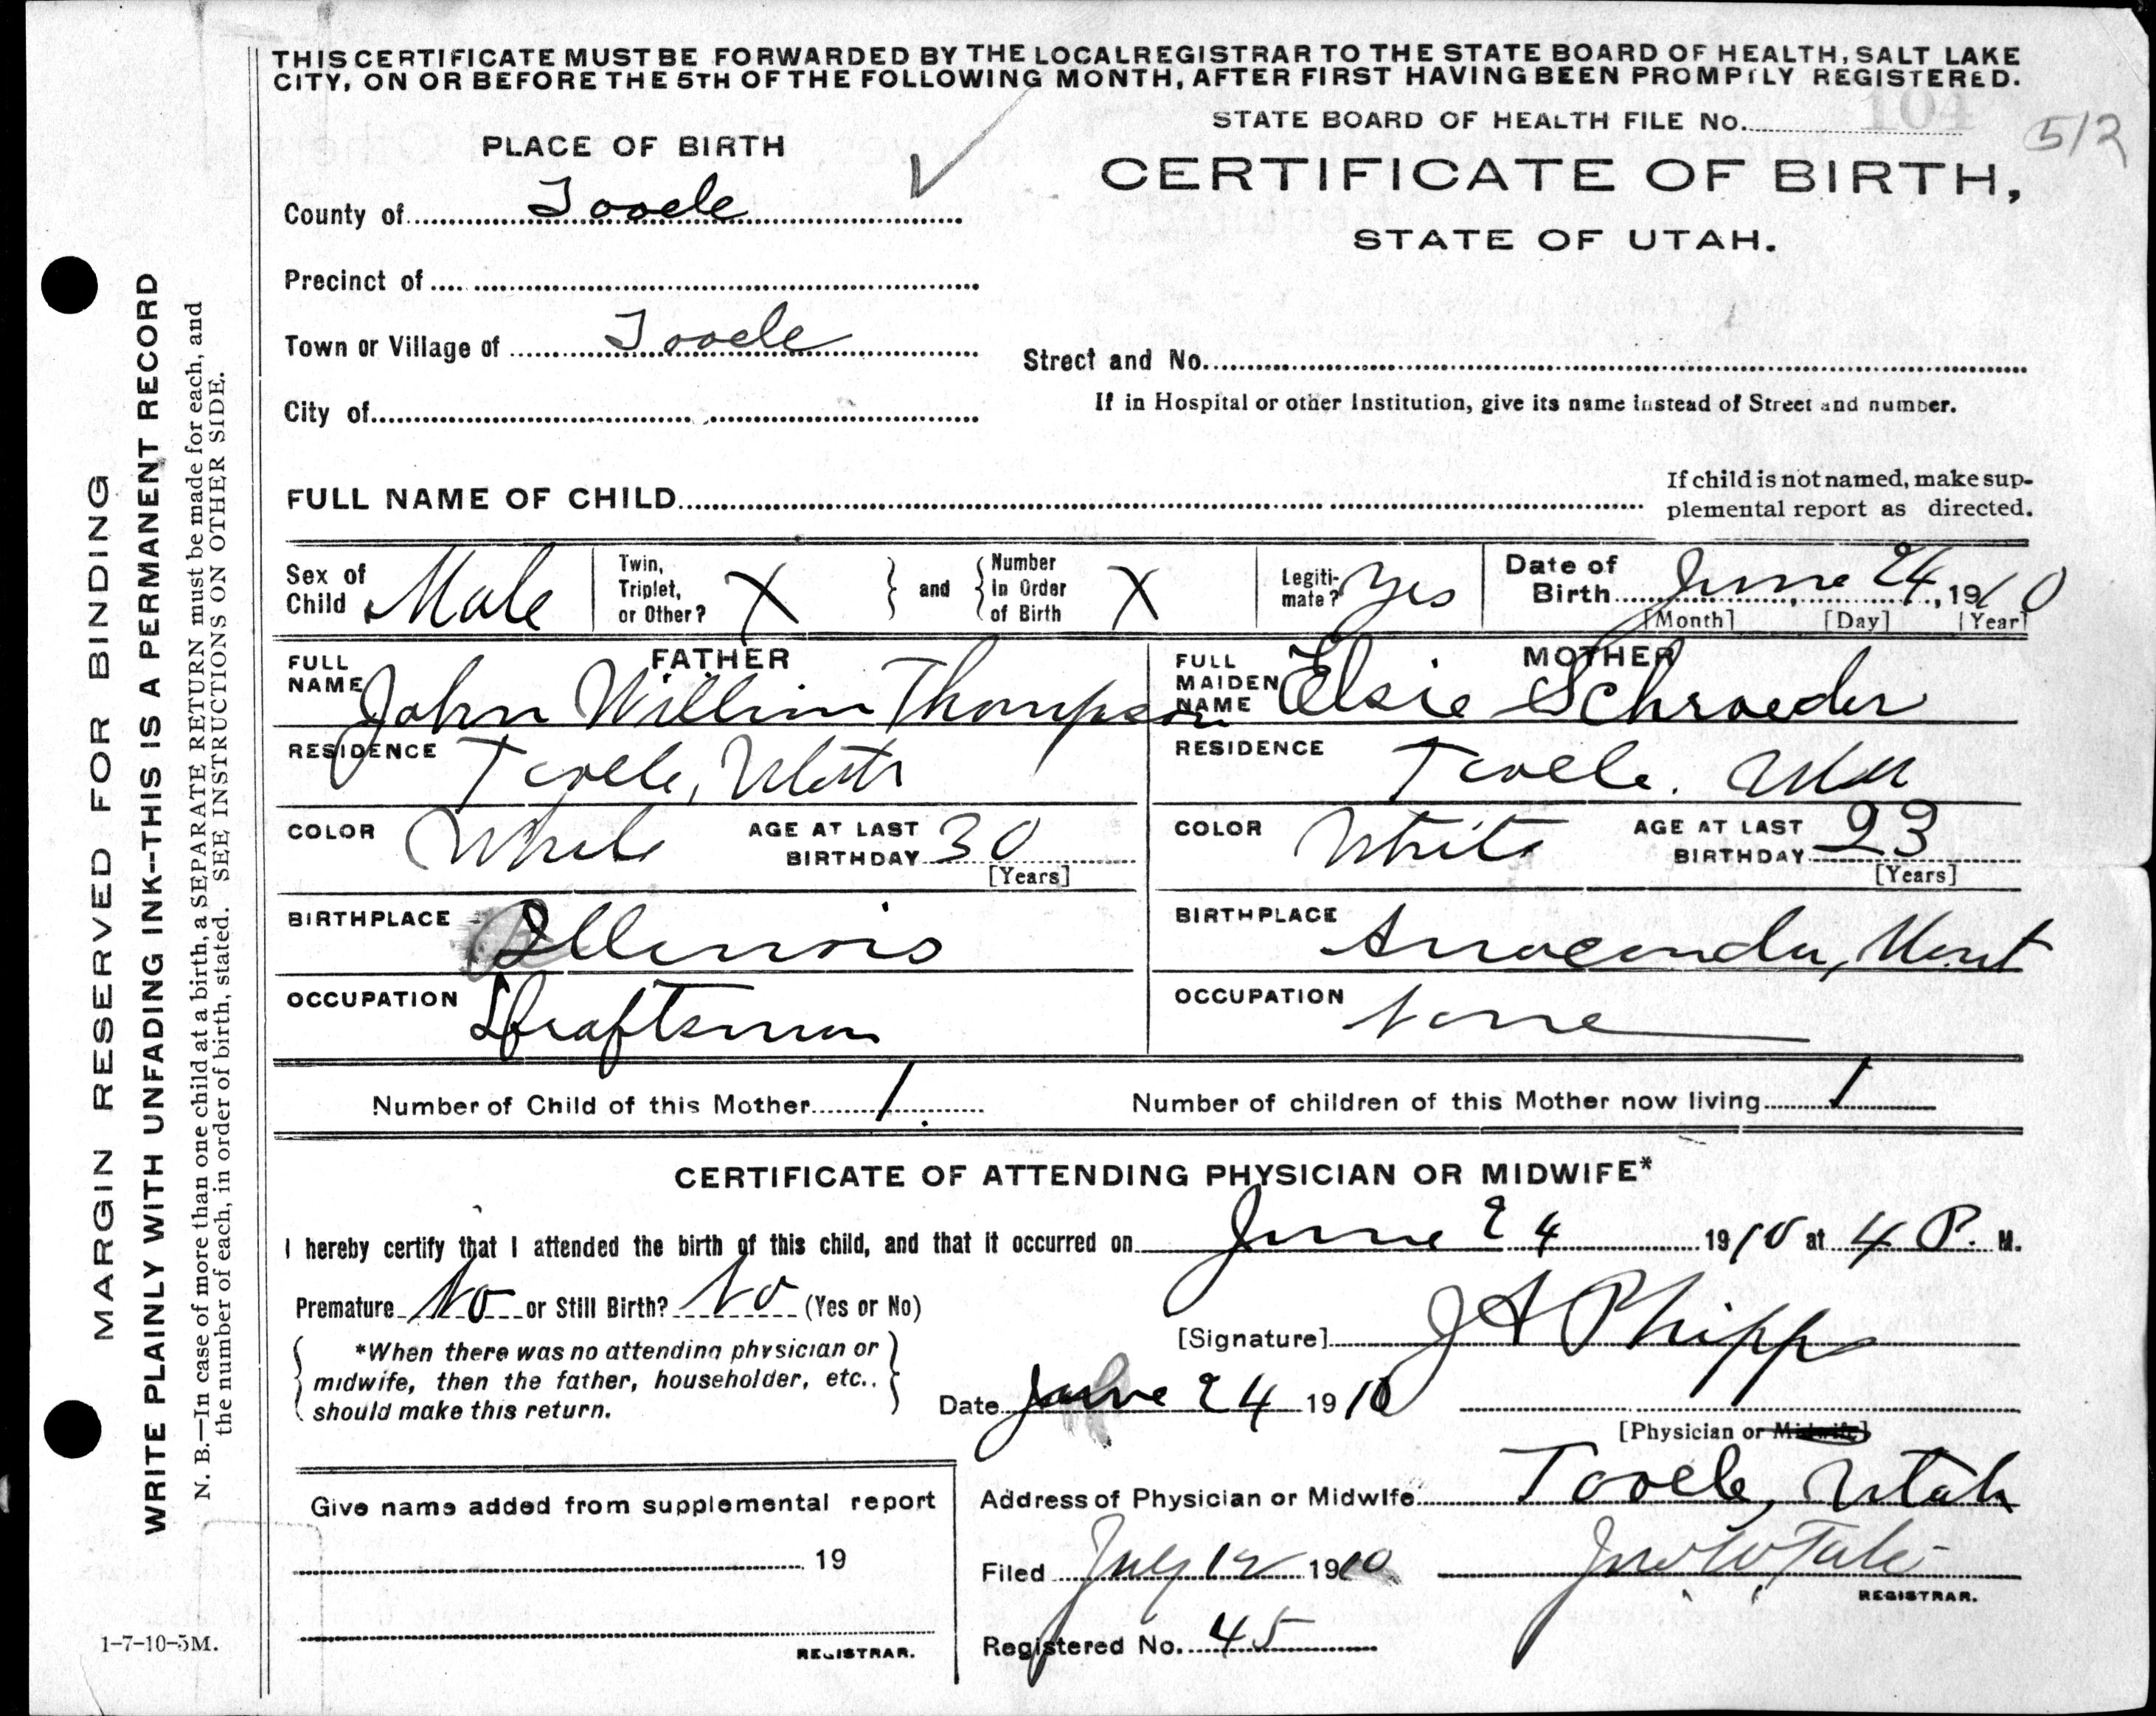 THIS CERTIFICATE MUST BE FORWARDED BY THE LOCAL REGISTRAR TO THE STATE BOARD OF HEALTH, SALT LAKE
CITY, ON OR BEFORE THE 5TH OF THE FOLLOWING MONTH, AFTER FIRST HAVING BEEN PROMPTLY REGISTERED.
STATE BOARD OF HEALTH FILE No. 104
512
PLACE OF BIRTH
CERTIFICATE OF BIRTH,
STATE OF UTAH.
County of Tooele
Precinct of
Town or Village of Tooele
Street and No.
City of
If in Hospital or other Institution, give its name instead of Street and number.
FULL NAME OF CHILD
If child is not named, make sup-
plemental report as directed.
Sex of Child Male
Twin, Triplet, or Other? X
and
Number in Order of Birth X
Legiti-mate? Yes
Date of Birth June 24, 1910
[Month] [Day] [Year]
FATHER
FULL NAME John William Thompson
MOTHER
FULL MAIDEN NAME Elsie Schroeder
RESIDENCE Tooele, Utah
RESIDENCE Tooele, Utah
COLOR White AGE AT LAST BIRTHDAY 30 [Years]
COLOR White AGE AT LAST BIRTHDAY 23 [Years]
BIRTHPLACE Illinois
BIRTHPLACE Anaconda, Mont
OCCUPATION Draftsman
OCCUPATION None
Number of Child of this Mother 1
Number of children of this Mother now living 1
CERTIFICATE OF ATTENDING PHYSICIAN OR MIDWIFE*
I hereby certify that I attended the birth of this child, and that it occurred on June 24 1910 at 4 P. M.
Premature No or Still Birth? No (Yes or No)
[Signature] J A Phipps
*When there was no attending physician or
midwife, then the father, householder, etc..
should make this return.
Date June 24 1910
[Physician or Midwife]
Address of Physician or Midwife Tooele, Utah
Give name added from supplemental report
19
REGISTRAR.
Filed July 12 1910
REGISTRAR.
Registered No. 45
MARGIN RESERVED FOR BINDING
WRITE PLAINLY WITH UNFADING INK--THIS IS A PERMANENT RECORD
N. B.—In case of more than one child at a birth, a SEPARATE RETURN must be made for each, and
the number of each, in order of birth, stated. SEE INSTRUCTIONS ON OTHER SIDE.
1-7-10-5M.